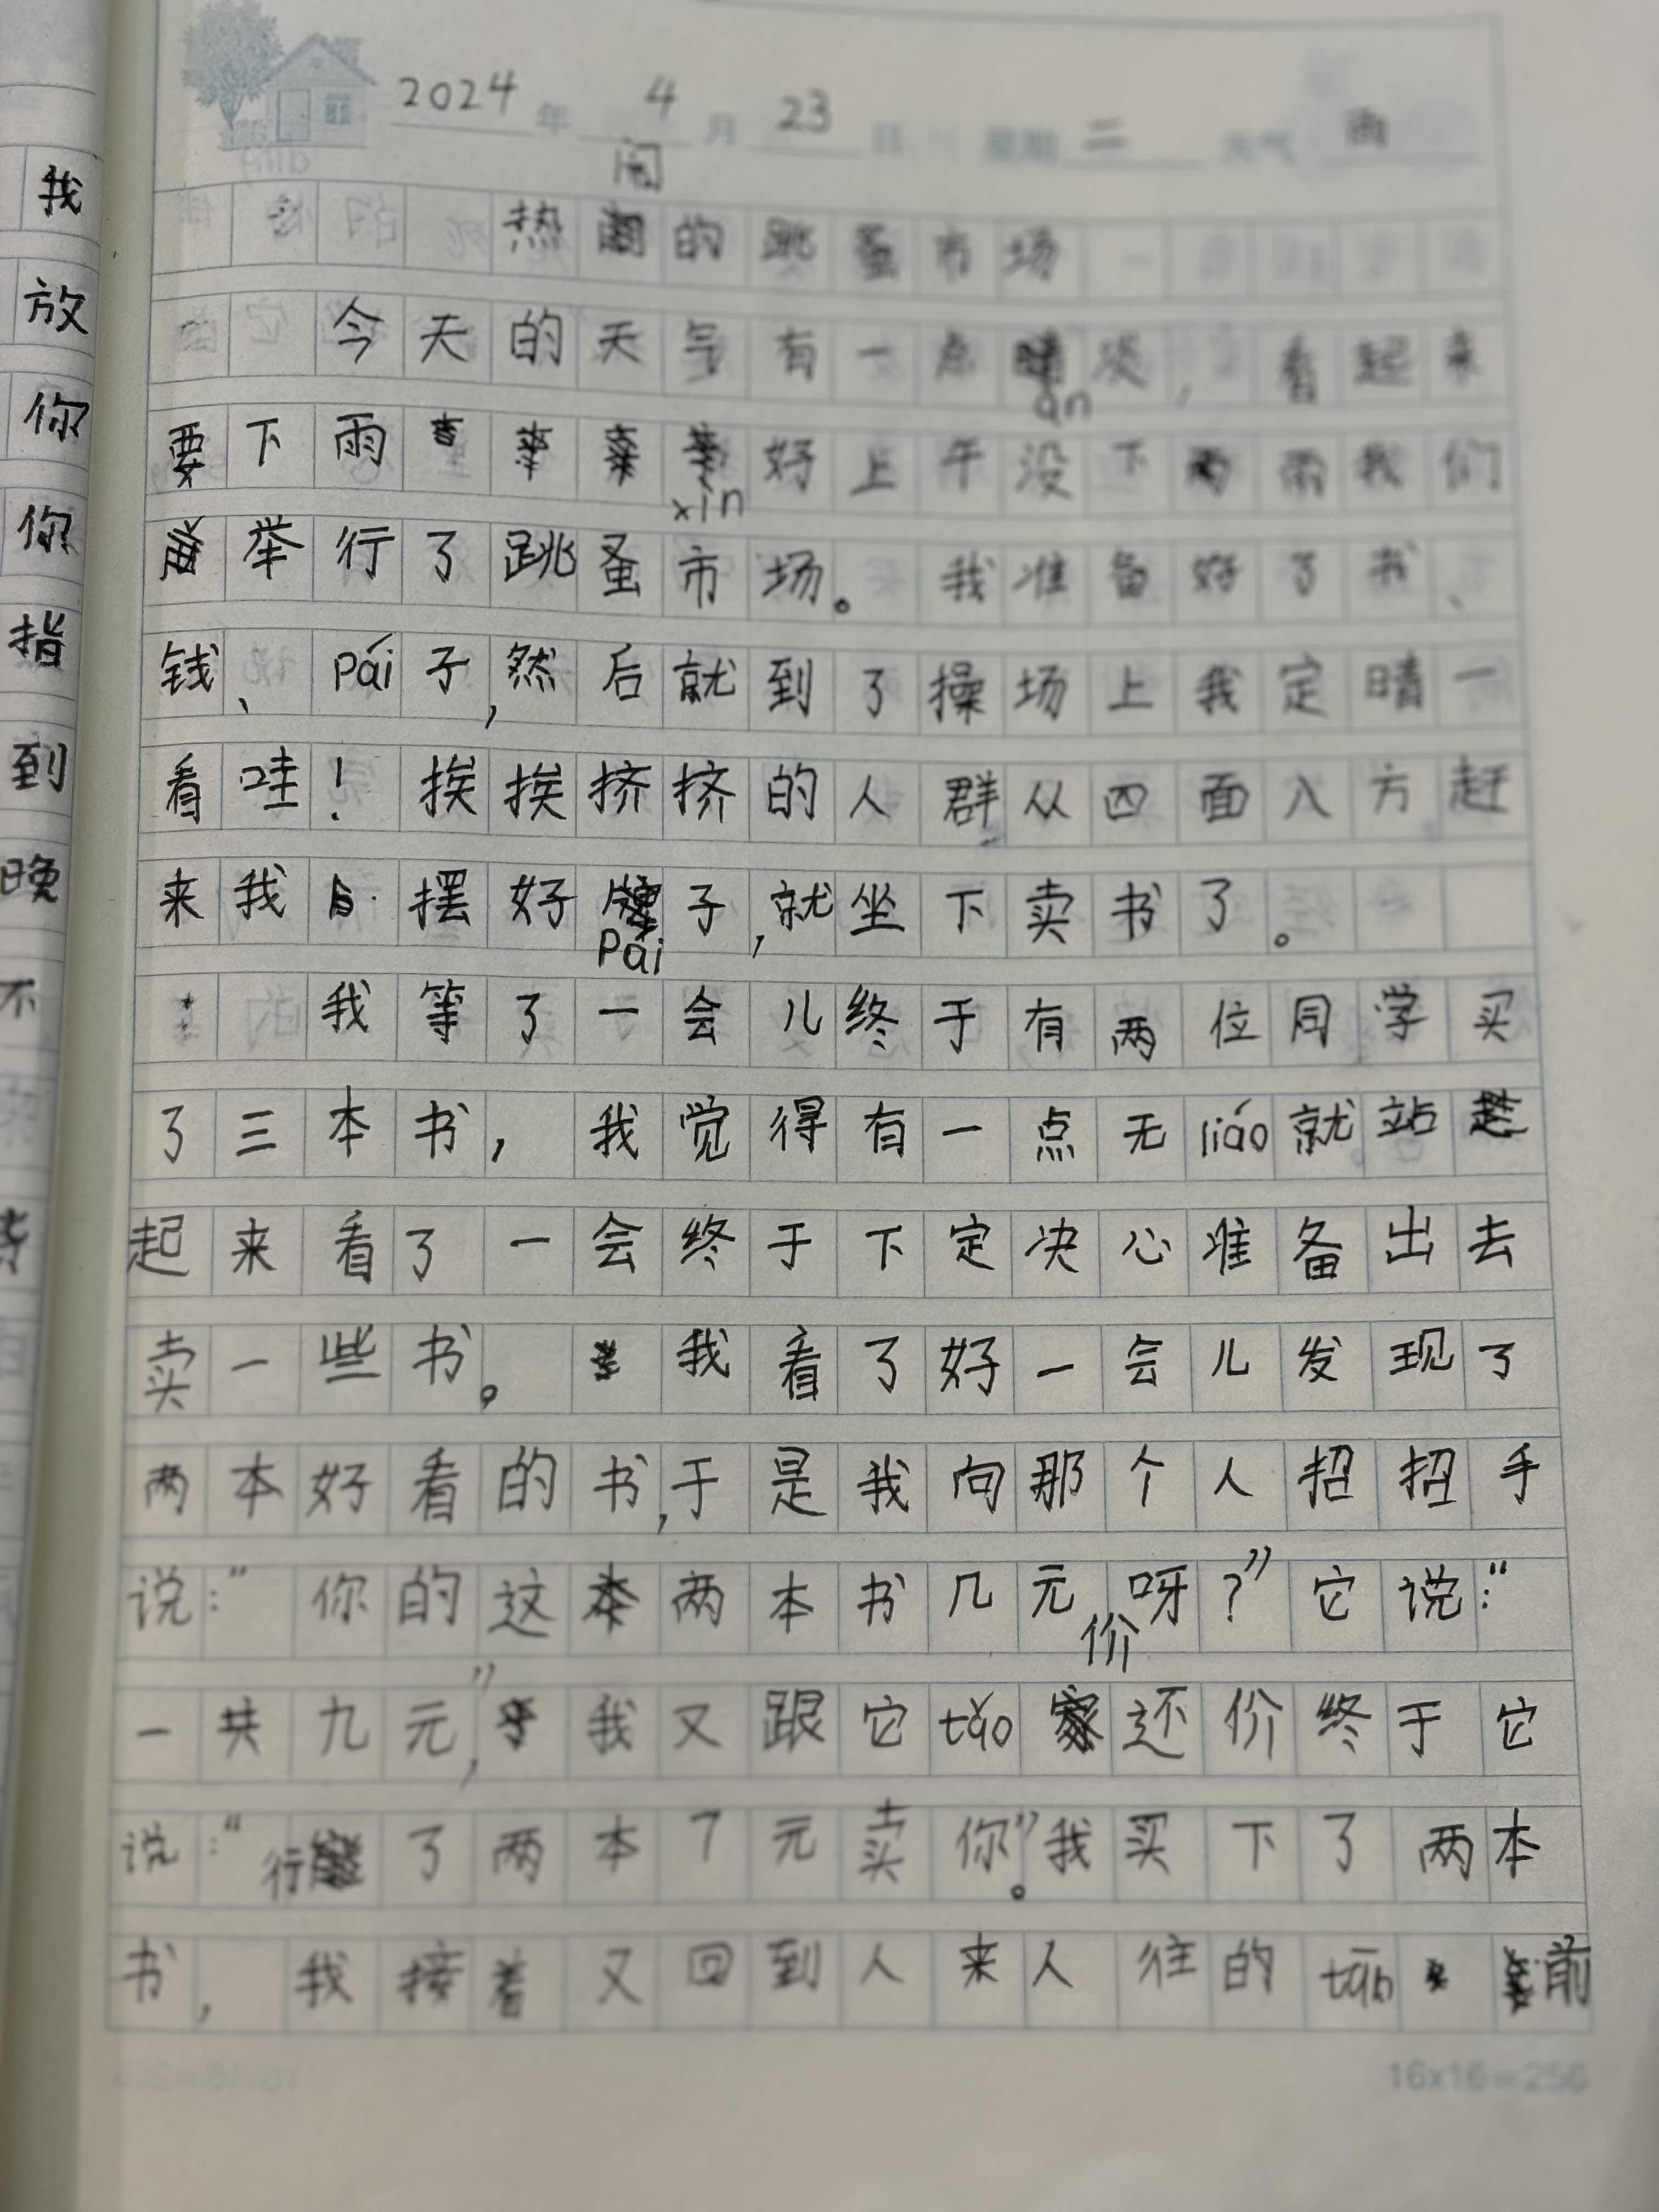 2024年4月23日 星期二 天气 雨
闹
热的跳蚤市场
今天的天气有一点淡，看起来
an
要下雨好上午没下雨我们
xìn
举行了跳蚤市场。我准备好了书、
钱、pái子，然后就到了操场上我定晴一
看哇！挨挨挤挤的人群从四面八方赶
来我摆好子，就坐下卖书了。
Pái
我等了一会儿终于有两位同学买
了三本书，我觉得有一点无liáo就站
起来看了一会终于下定决心准备出去
卖一些书。我看了好一会儿发现了
两本好看的书，于是我向那个人招招手
说：“你的这两本书几元呀？”它说：“
价
一共九元”，我又跟它tǎo还价终于它
说：“行了两本7元卖你”。我买下了两本
书，我接着又回到人来人往的tān前
16x16=256
我
放
你
你
指
到
晚
不